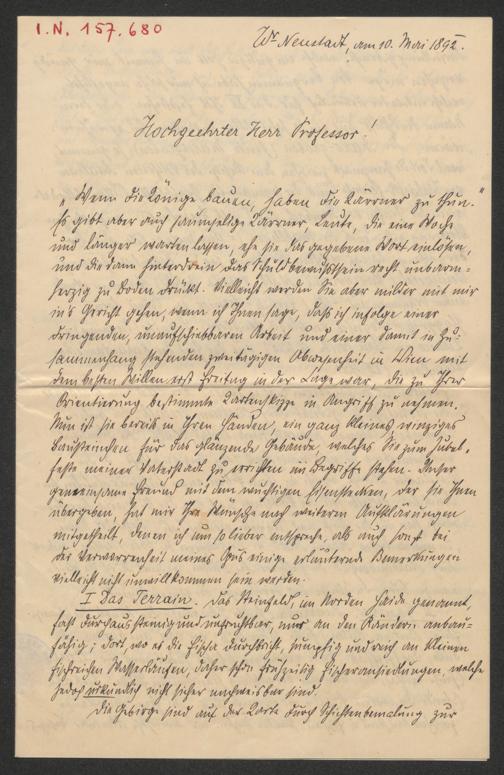 I.N. 157.680
Wr Neustadt, am 10. Mai 1892.
Hochgeehrter Herr Professor!
„Wenn die Könige bauen, haben die Kärrner zu thun.“
Es gibt aber auch saumselige Kärrner, Leute, die eine Woche
und länger warten lassen, ehe sie das gegebene Wort einlösen,
und die dann hinterdrein das Schuldbewußtsein recht unbarm-
herzig zu Boden drückt. Vielleicht werden Sie aber milder mit mir
in's Gericht gehen, wenn ich Ihnen sage, daß ich infolge einer
dringenden, unaufschiebbaren Arbeit und einer damit in Zu-
sammenhang stehenden zweitägigen Abwesenheit in Wien mit
dem besten Willen erst Freitag in der Lage war, die zu Ihrer
Orientierung bestimmte Kartenskizze in Angriff zu nehmen.
Nun ist sie bereits in Ihren Händen, ein ganz kleines winziges
Bausteinchen für das glänzende Gebäude, welches Sie zum Jubel-
feste meiner Vaterstadt zu errichten im Begriffe stehen. Unser
gemeinsame Freund mit dem wuchtigen Eisenstecken, der sie Ihnen
übergeben, hat mir Ihre Wünsche nach weiteren Aufklärungen
mitgetheilt, denen ich um so lieber entspreche, als auch sonst bei
der Verworrenheit meines einige erläuternde Bemerkungen
vielleicht nicht unwillkommen sein werden.
I Das Terrain. Das Steinfeld, im Norden Haide genannt,
fast durchaus steinig und unfruchtbar, nur an den Rändern anbau-
fähig; dort, wo es die Fischa durchbricht, sumpfig und reich an kleinen
fischreichen Wasserläufen, daher schon frühzeitig Fischeransiedlungen, welche
jedoch urkundlich nicht sicher nachweisbar sind.
Die Gebirge sind auf der Karte durch Schichtenbemalung zur